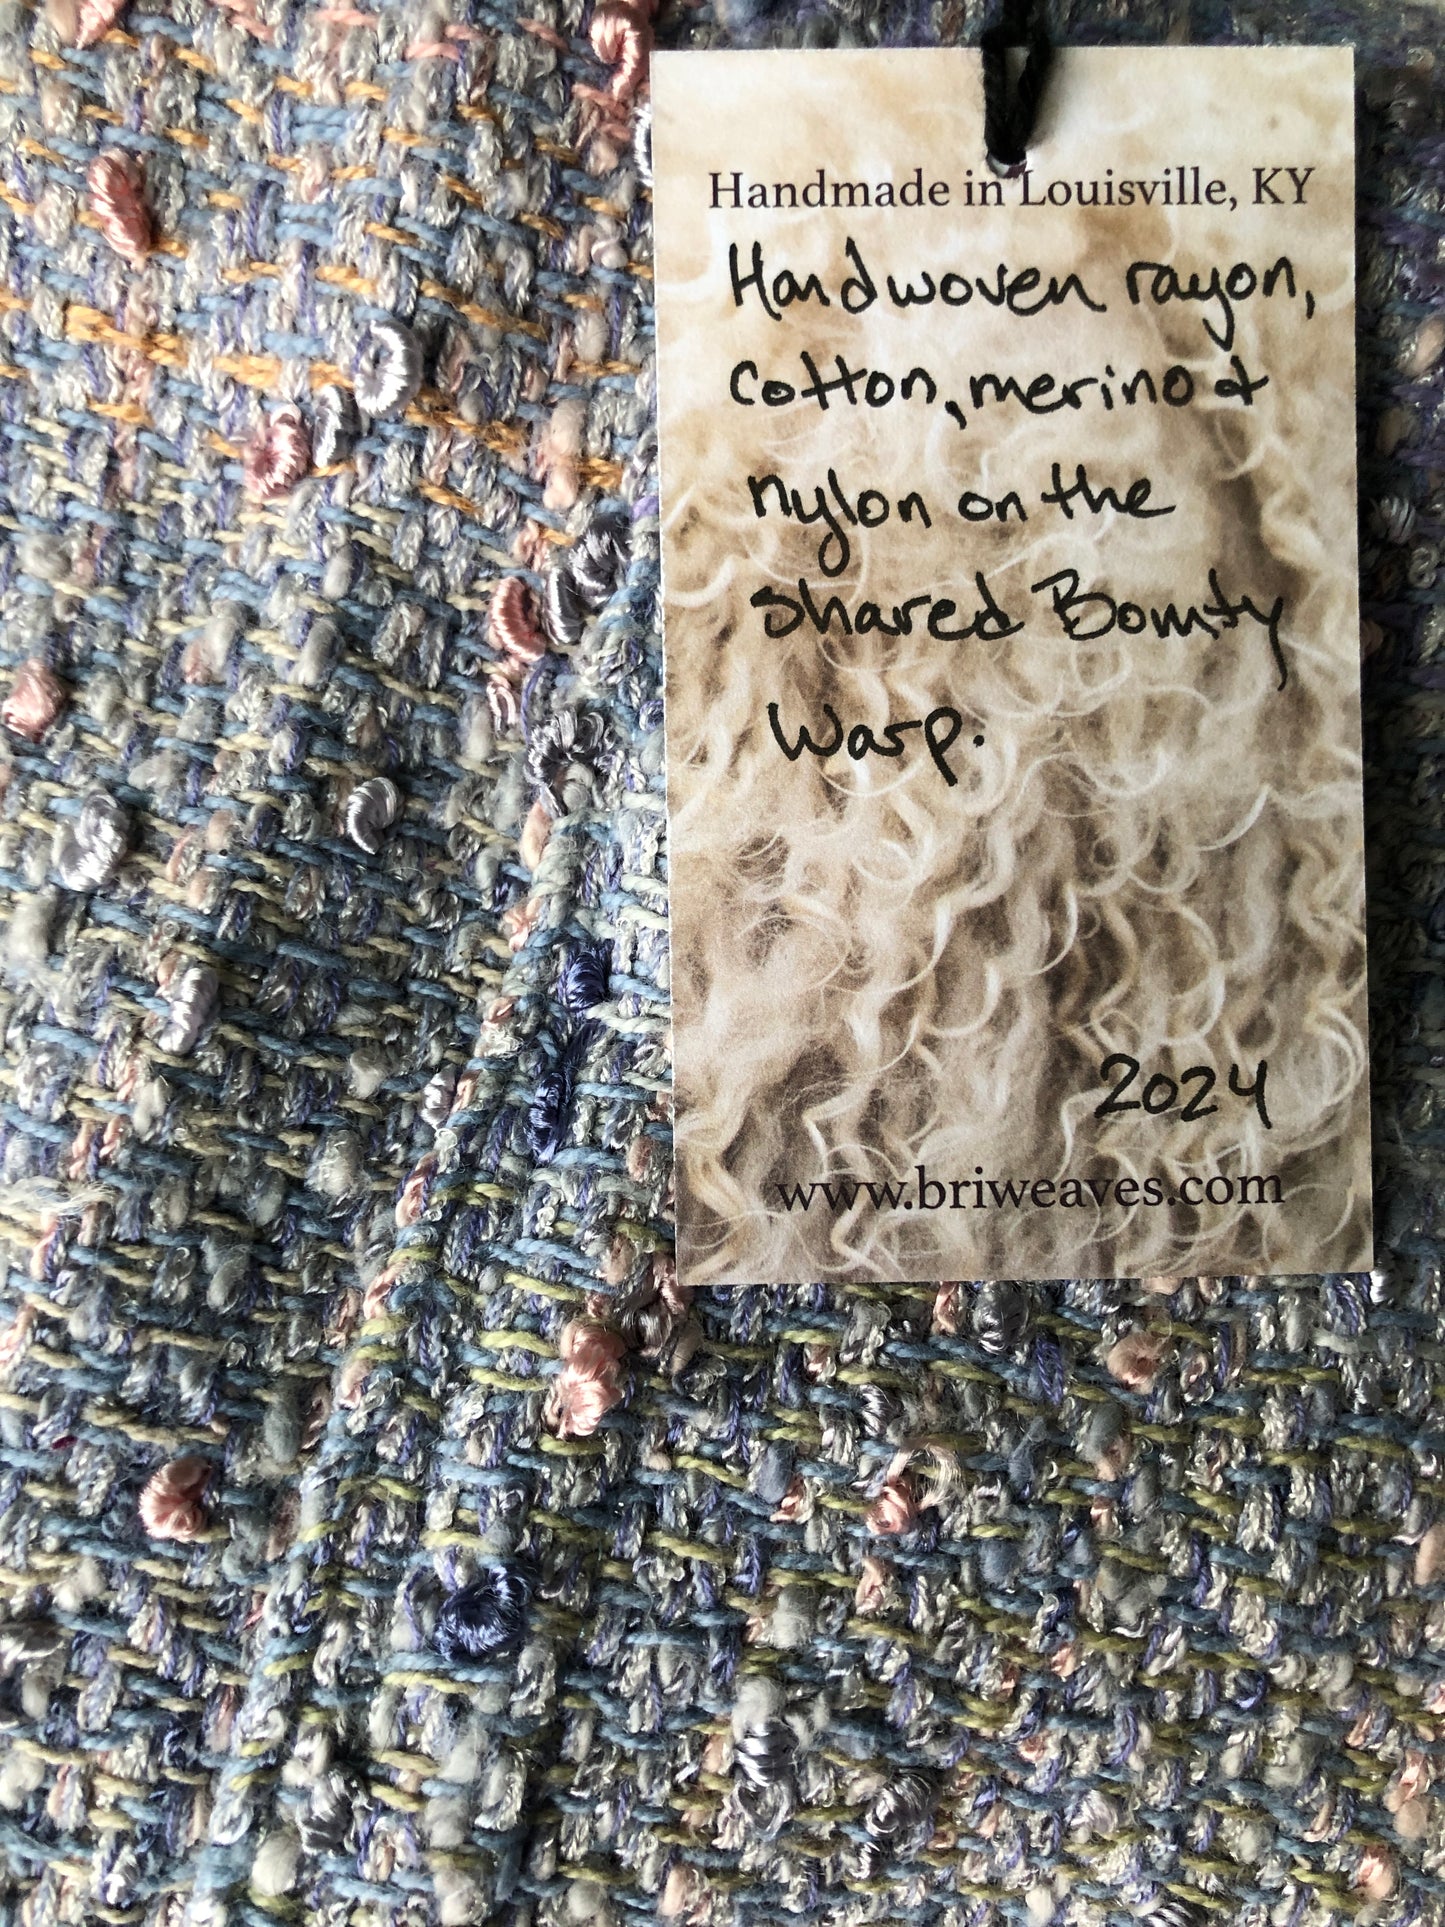 Handmade in Louisville, KY
Handwoven rayon,
cotton, merino &
nylon on the
shared Bounty
Warp.
2024
www.briweaves.com